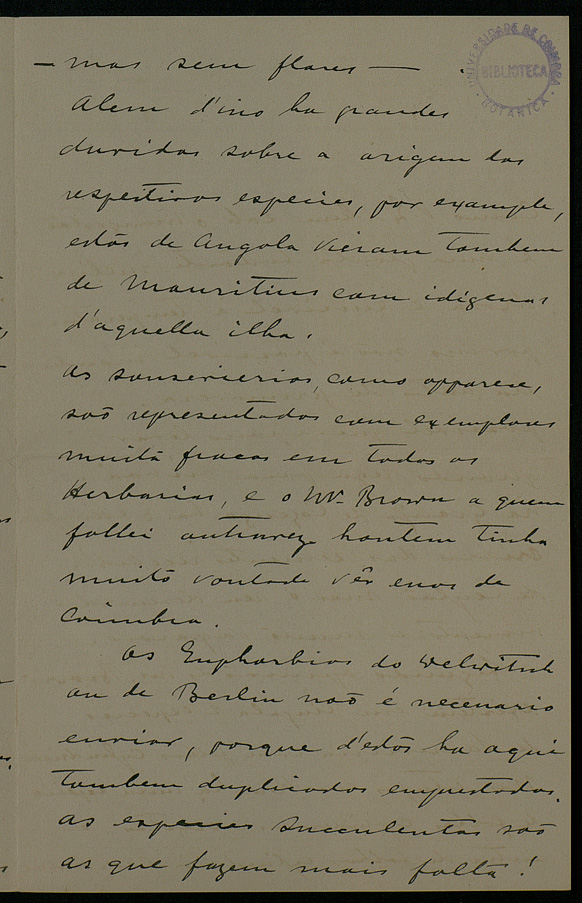 UNIVERSIDADE DE COIMBRA
BIBLIOTECA
BOTANICA
— mas sem flores —
Alem d'isso ha grandes
duvidas sobre a origem das
respeitivas especies, por example,
estas de Angola vieram tambem
de Mauritius com idigenas
d'aquella ilha.
As sanseverias, como apparece,
são representadas com exemplares
muita fracas em todos os
Herbarias, e o Mr. Brown a quem
fallei hontem tinha
muitá vontade vêr essas de
Coimbra.
As Euphorbias do Welwitsch
ou de Berlin naõ é necessario
enviar, porque d'estas ha aqui
tambem duplicados emprestados.
As especies succulentas saõ
as que fazem mais falta!